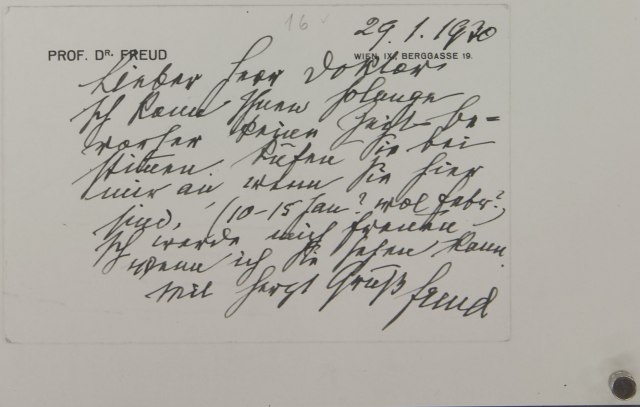 16
29.1.1930
PROF. DR. FREUD
WIEN, IX., BERGGASSE 19.
Lieber Herr Doktor
Ich kann Ihnen solange
vorher keine Zeit be-
stimmen. Rufen Sie bei
mir an, wenn Sie hier
sind, (10–15 Jan? wol Febr?)
Ich werde mich freuen
wenn ich Sie sehen kann.
Mit herzl Gruß Freud